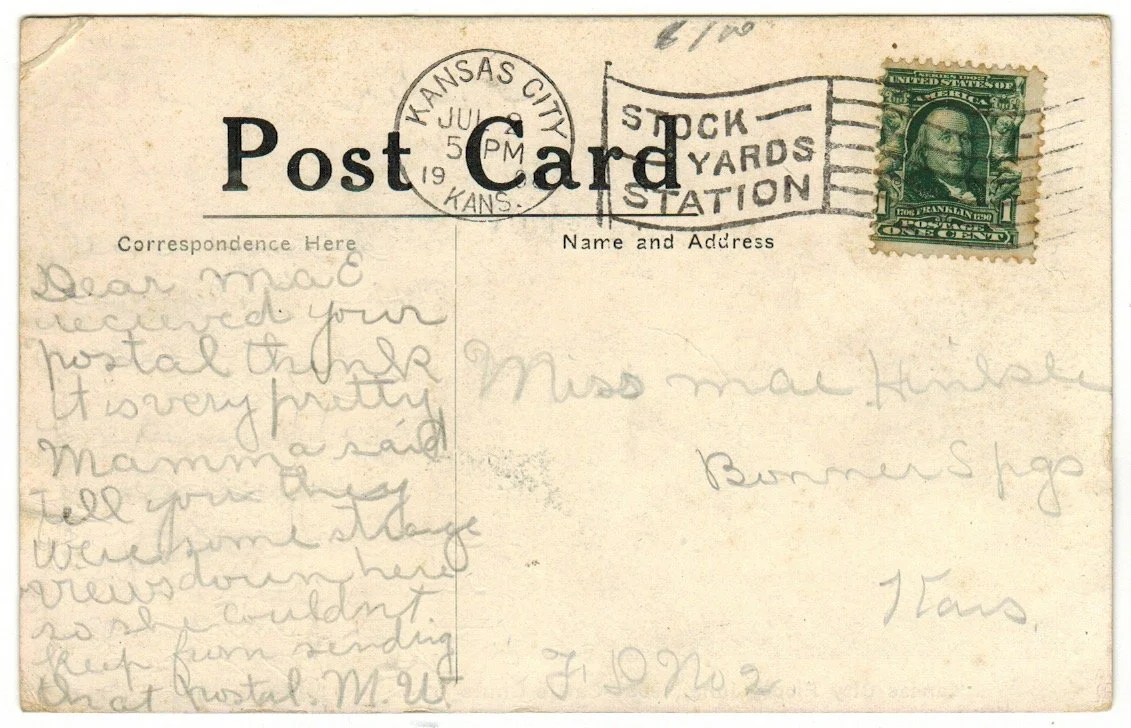 6/00
KANSAS CITY
JUL 2
5 PM
19 0
KANS.
STOCK
YARDS
STATION
SERIES 1902
UNITED STATES OF
AMERICA
1 1
1706 FRANKLIN 1790
POSTAGE
ONE CENT
Post Card
Correspondence Here
Name and Address
Dear Mae
recieved your
postal think
it is very pretty
Mamma said
tell you they
were some strange
views down here
so she couldnt
keep from sending
that postal. M. W.
Miss Mae Hinkle
Bonner Spgs
Kans.
F D No 2